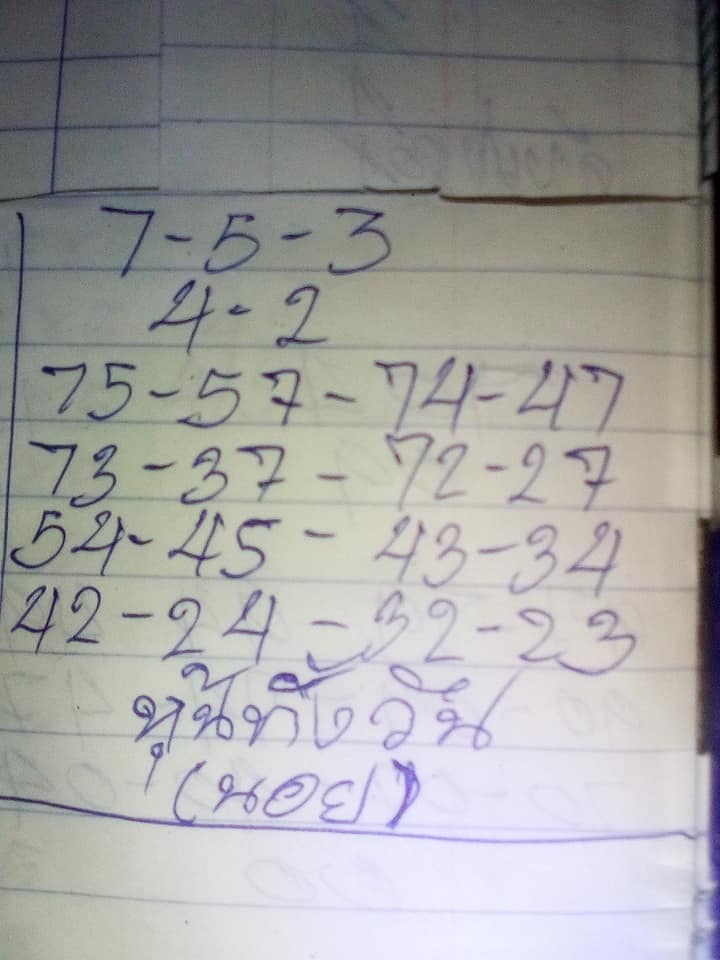 7-5-3
4-2
75-57-74-47
73-37-72-27
54-45-43-34
42-24-32-23
หุ้นทั้งวัน
(นอย)